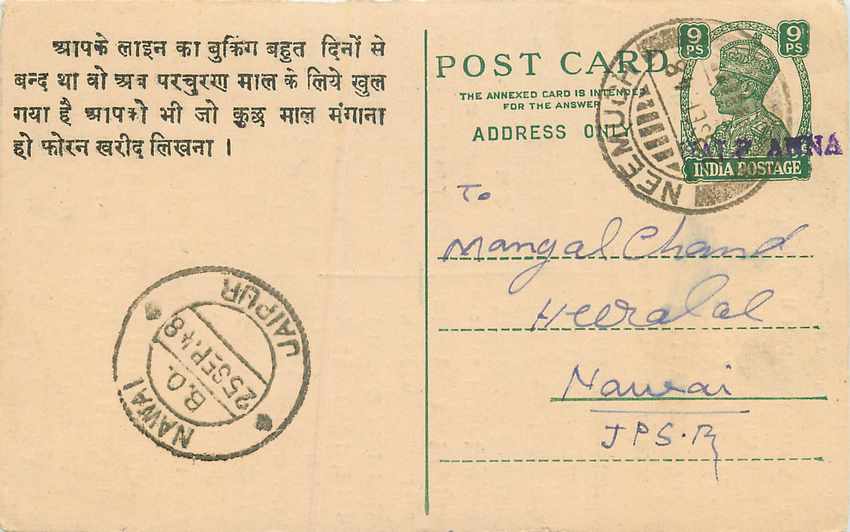 आपके लाइन का बुकिंग बहुत दिनों से
बन्द था वो अब परचुरण माल के लिये खुल
गया है आपको भी जो कुछ माल मंगाना
हो फोरन खरीद लिखना ।
POST CARD
THE ANNEXED CARD IS INTENDED
FOR THE ANSWER
ADDRESS ONLY
9 PS
9 PS
INDIA POSTAGE
HALF ANNA
NEEMUCH
To
Mangal Chand
Heeralal
Nawai
JPS.R
NAWAI
B.O.
25 SEP. 48
JAIPUR